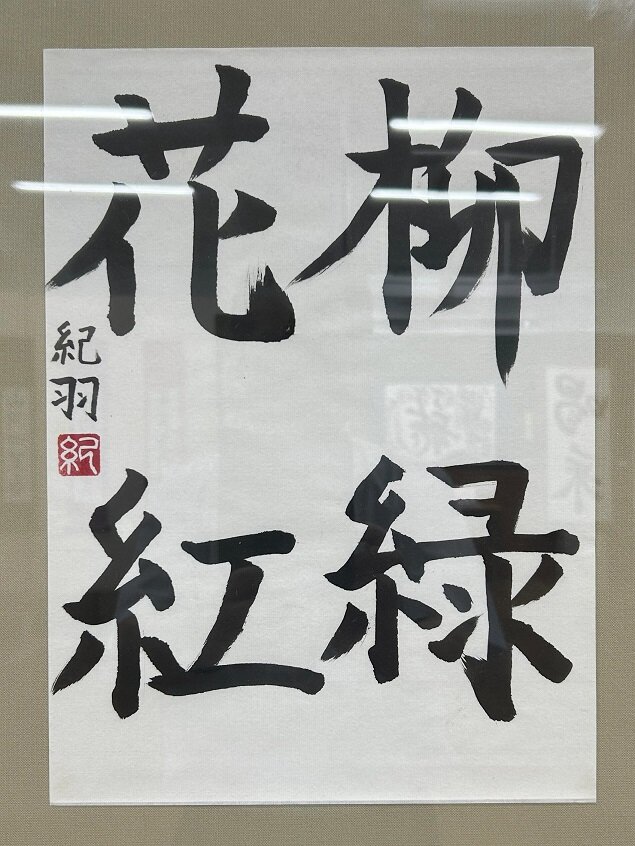 柳緑
花紅
紀羽
紀